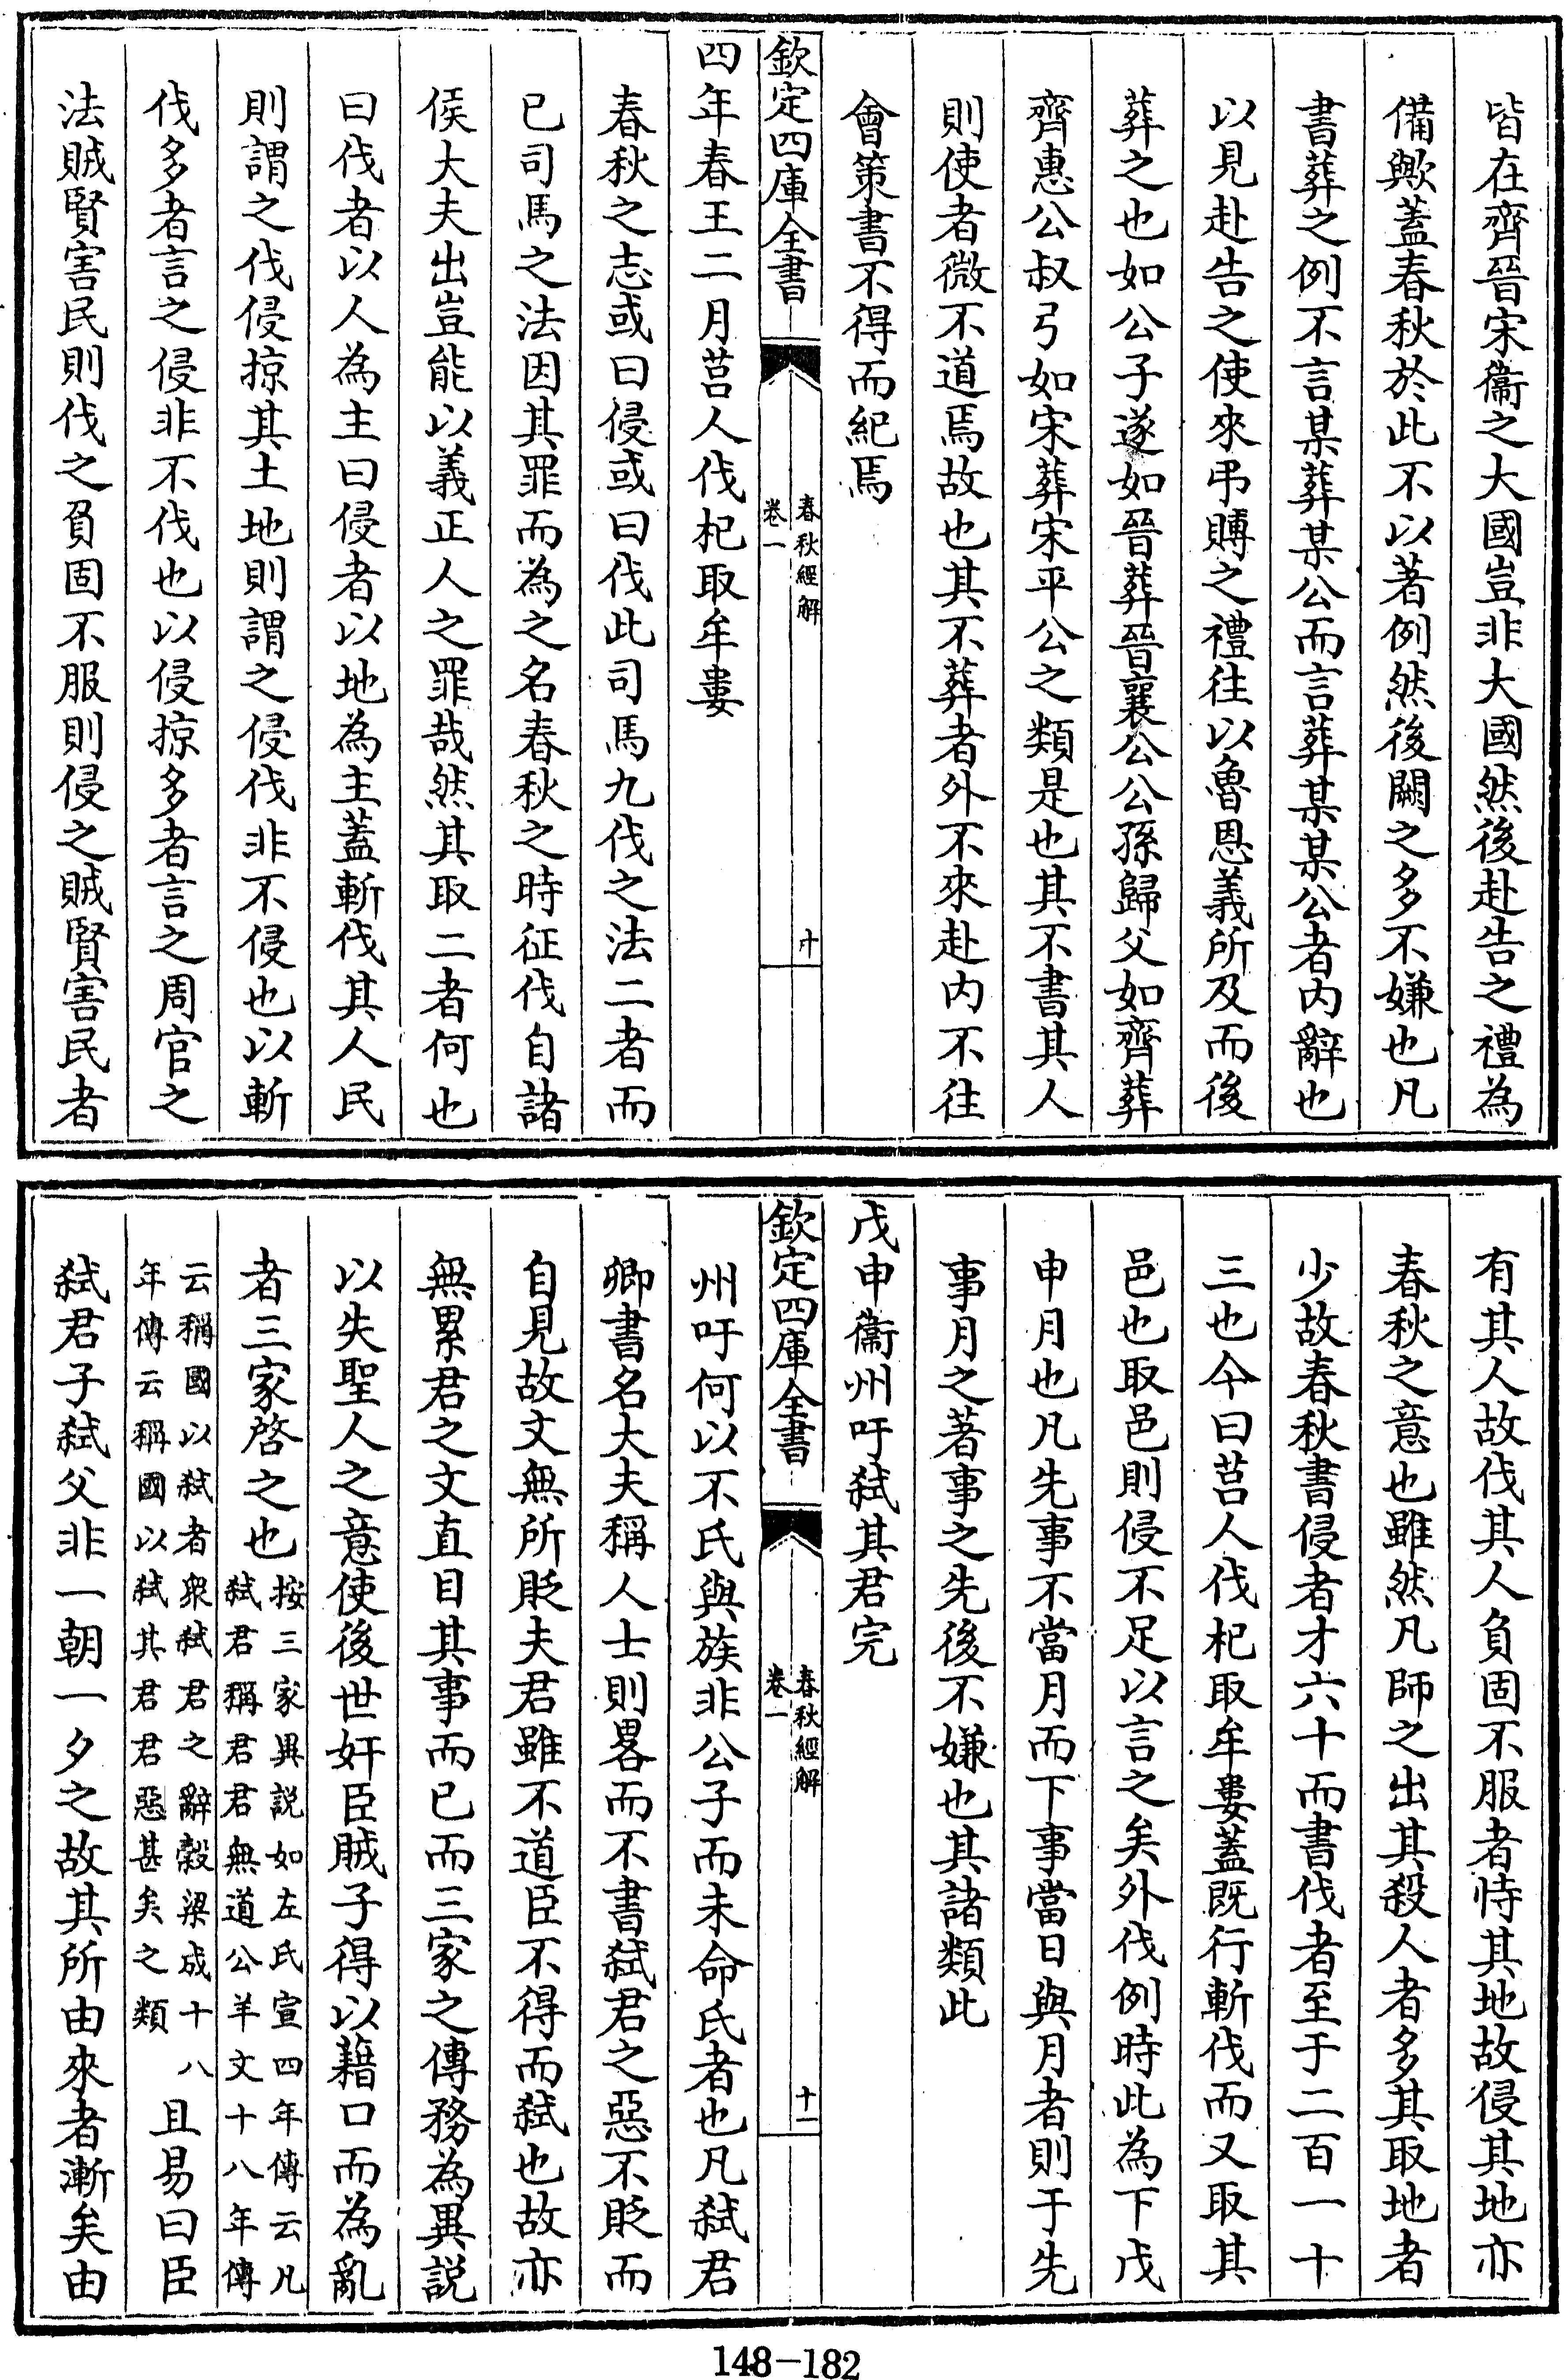 皆在齊晉宋衞之大國豈非大國然後赴告之禮為
備歟蓋春秋於此不以著例然後闕之多不嫌也凡
書葬之例不言某葬某公而言葬某某公者内辭也
以見赴告之使來弔賻之禮往以魯恩義所及而後
葬之也如公子遂如晉葬晉襄公公孫歸父如齊葬
齊惠公叔弓如宋葬宋平公之類是也其不書其人
則使者微不道焉故也其不葬者外不來赴内不往
會策書不得而紀焉
欽定四庫全書
春秋經解
卷一
十
四年春王二月莒人伐杞取牟婁
春秋之志或曰侵或曰伐此司馬九伐之法二者而
已司馬之法因其罪而為之名春秋之時征伐自諸
侯大夫出豈能以義正人之罪哉然其取二者何也
曰伐者以人為主曰侵者以地為主蓋斬伐其人民
則謂之伐侵掠其土地則謂之侵伐非不侵也以斬
伐多者言之侵非不伐也以侵掠多者言之周官之
法賊賢害民則伐之負固不服則侵之賊賢害民者
有其人故伐其人負固不服者恃其地故侵其地亦
春秋之意也雖然凡師之出其殺人者多其取地者
少故春秋書侵者才六十而書伐者至于二百一十
三也今曰莒人伐杞取牟婁蓋既行斬伐而又取其
邑也取邑則侵不足以言之矣外伐例時此為下戊
申月也凡先事不當月而下事當日與月者則于先
事月之著事之先後不嫌也其諸類此
戊申衞州吁弑其君完
欽定四庫全書
春秋經解
卷一
十一
州吁何以不氏與族非公子而未命氏者也凡弑君
卿書名大夫稱人士則畧而不書弑君之惡不貶而
自見故文無所貶夫君雖不道臣不得而弑也故亦
無累君之文直目其事而已而三家之傳務為異説
以失聖人之意使後世奸臣賊子得以藉口而為亂
者三家啓之也按三家異説如左氏宣四年傳云凡
弑君稱君君無道公羊文十八年傳
云稱國以弑者衆弑君之辭穀梁成十八
年傳云稱國以弑其君君惡甚矣之類 且易曰臣
弑君子弑父非一朝一夕之故其所由來者漸矣由
148-182